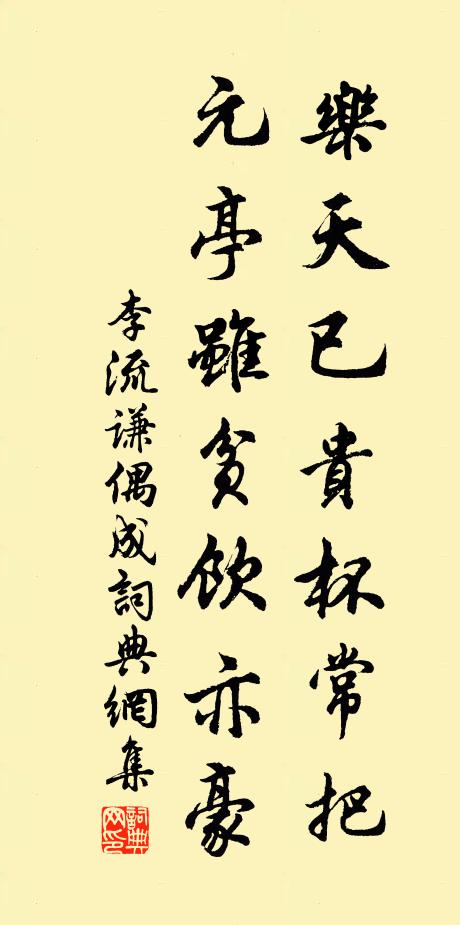 樂天已貴杯常把
元亭雖貧飲亦豪
李流謙偶成詞典網集
詞典网印